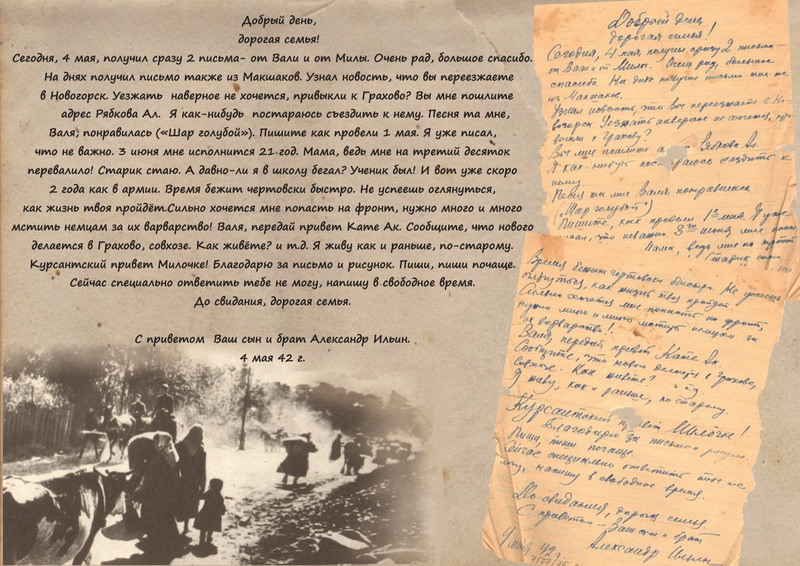 Добрый день,
дорогая семья!
Сегодня, 4 мая, получил сразу 2 письма- от Вали и от Милы. Очень рад, большое спасибо.
На днях получил письмо также из Макшаков. Узнал новость, что вы переезжаете
в Новогорск. Уезжать  наверное не хочется, привыкли к Грахово? Вы мне пошлите
адрес Рябкова Ал.  Я как-нибудь  постараюсь съездить к нему. Песня та мне,
Валя, понравилась («Шар голубой»). Пишите как провели 1 мая. Я уже писал,
что не важно. 3 июня мне исполнится 21 год. Мама, ведь мне на третий десяток
перевалило! Старик стаю. А давно-ли я в школу бегал? Ученик был! И вот уже скоро
2 года как в армии. Время бежит чертовски быстро. Не успеешь оглянуться,
как жизнь твоя пройдёт.Сильно хочется мне попасть на фронт, нужно много и много
мстить немцам за их варварство! Валя, передай привет Кате Ак. Сообщите, что нового
делается в Грахово, совхозе. Как живёте? и т.д. Я живу как и раньше, по-старому.
Курсантский привет Милочке! Благодарю за письмо и рисунок. Пиши, пиши почаще.
Сейчас специально ответить тебе не могу, напишу в свободное время.
До свидания, дорогая семья.
С приветом  Ваш сын и брат Александр Ильин.
4 мая 42 г.
Добрый день
дорогая семья!
Сегодня, 4 мая, получил сразу 2 письма -
от Вали и от Милы. Очень рад, большое
спасибо. На днях получил письмо так-же
из Макшаков.
Узнал новость, что Вы переезжаете в Но-
вогорск. Уезжать наверное не хочется, при
выкли к Грахову?
Вы мне пошлите Рябкова Ал.
Я как-нибудь постараюсь съездить к
нему.
Песня та мне Валя, понравилась
("Шар голубой")
Пишите, как провели 1ое мая. Я уже
что неважно. 3го июня мне
Мама, ведь мне на третий
Старик стаю
Время бежит чертовски быстро. Не успеешь
оглянуться, как жизнь твоя пройдёт
Сильно хочется мне попасть на фронт,
нужно много и много мстить немцам за
их варварство!
Валя, передай привет Кате Ак.
Сообщите, что нового делается в Грахово,
совхозе. Как живёте?
Я живу, как и раньше, по старому.
Курсантский привет Милочке!
Благодарю за письмо и
Пиши, пиши почаще.
Сейчас специально ответить тебе не
могу, напишу в свободное время.
До свидания, дорогая семья
С приветом — Ваш сын и брат
4 мая 42 Александр Ильин